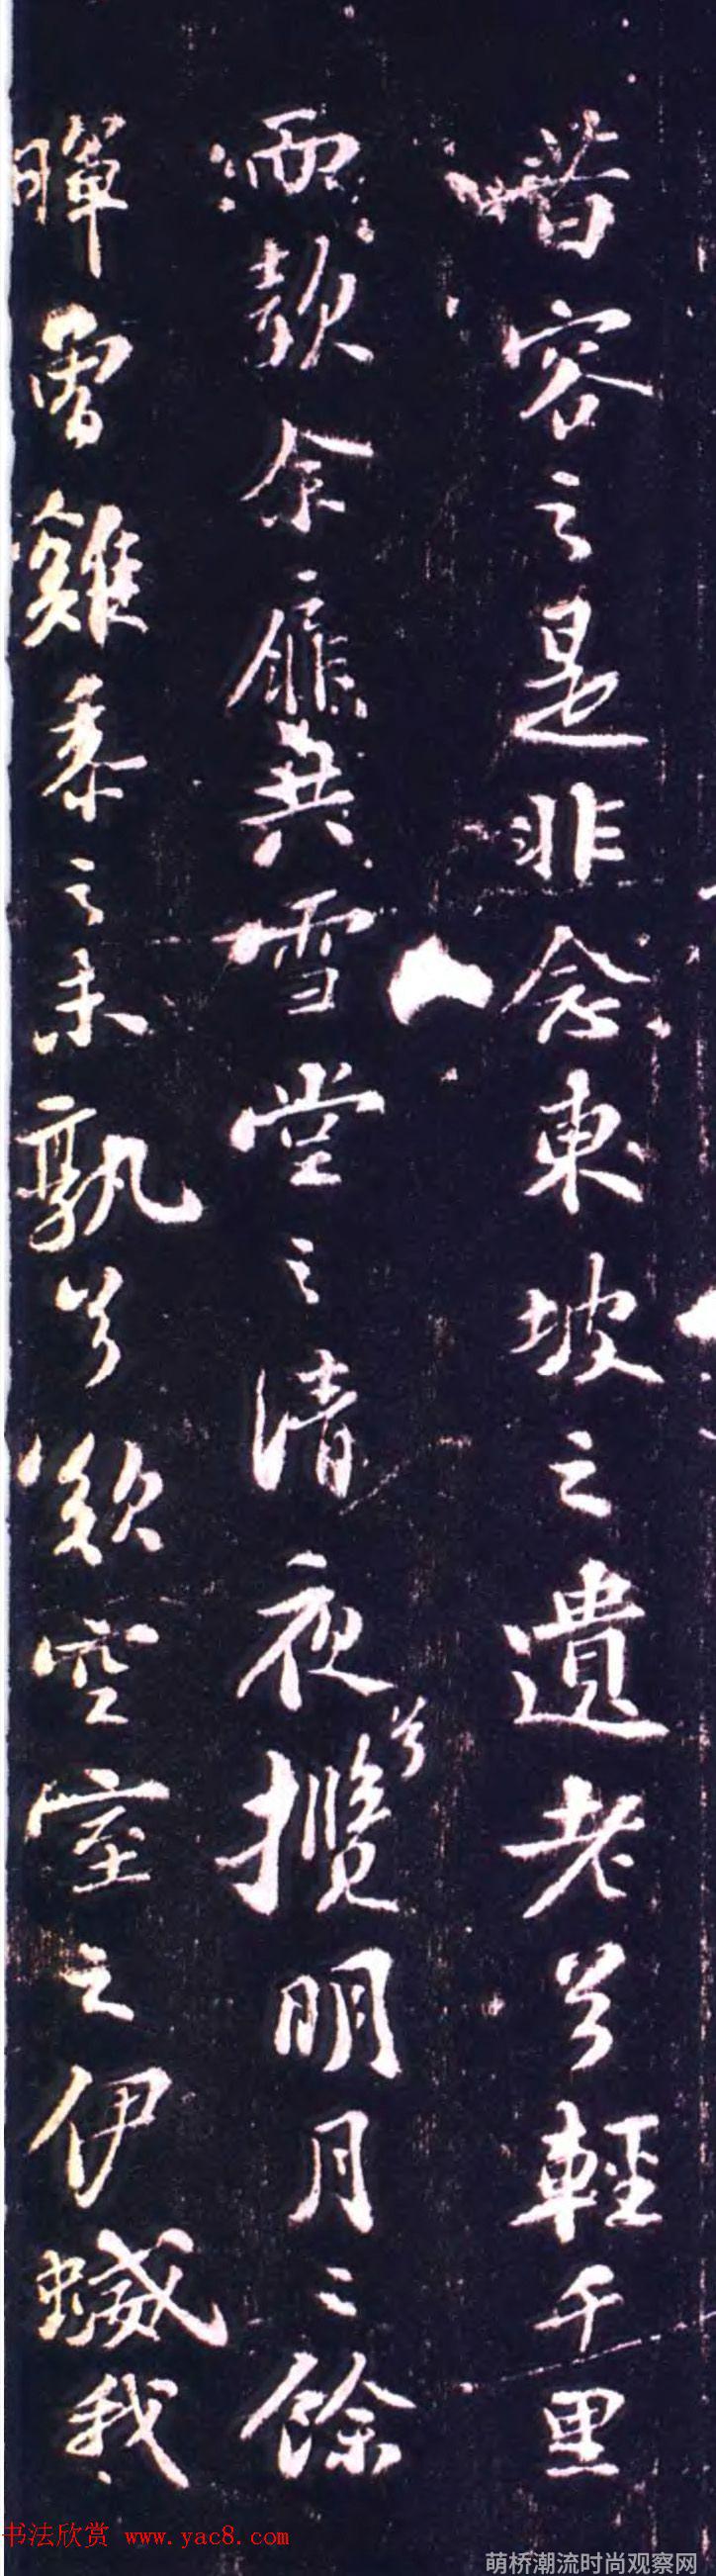 昔客之是非念東坡之遺老兮輕千里
而款余扉共雪堂之清夜兮攬明月之餘
暉曾雞黍之未孰兮歎空室之伊蝛我
书法欣赏 www.yac8.com
萌桥潮流时尚观察网